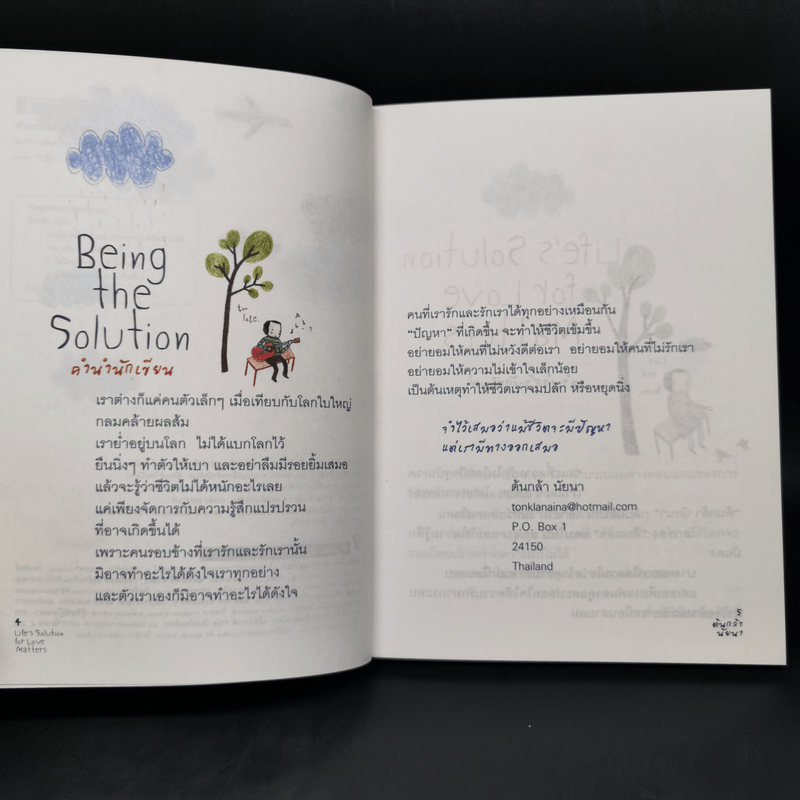 Being
the
Solution
คำนำนักเขียน
too
late.
เราต่างก็แค่คนตัวเล็กๆ เมื่อเทียบกับโลกใบใหญ่
กลมคล้ายผลส้ม
เราย่ำอยู่บนโลก ไม่ได้แบกโลกไว้
ยืนนิ่งๆ ทำตัวให้เบา และอย่าลืมมีรอยยิ้มเสมอ
แล้วจะรู้ว่าชีวิตไม่ได้หนักอะไรเลย
แค่เพียงจัดการกับความรู้สึกแปรปรวน
ที่อาจเกิดขึ้นได้
เพราะคนรอบข้างที่เรารักและรักเรานั้น
มิอาจทำอะไรได้ดังใจเราทุกอย่าง
และตัวเราเองก็มิอาจทำอะไรได้ดังใจ
4
Life's Solution
for Love
Matters
คนที่เรารักและรักเราได้ทุกอย่างเหมือนกัน
“ปัญหา” ที่เกิดขึ้น จะทำให้ชีวิตเข้มขึ้น
อย่ายอมให้คนที่ไม่หวังดีต่อเรา อย่ายอมให้คนที่ไม่รักเรา
อย่ายอมให้ความไม่เข้าใจเล็กน้อย
เป็นต้นเหตุทำให้ชีวิตเราจมปลัก หรือหยุดนิ่ง
จำไว้เสมอว่าแม้ชีวิตจะมีปัญหา
แต่เรามีทางออกเสมอ
ต้นกล้า นัยนา
tonklanaina@hotmail.com
P.O. Box 1
24150
Thailand
5
ต้นกล้า
นัยนา